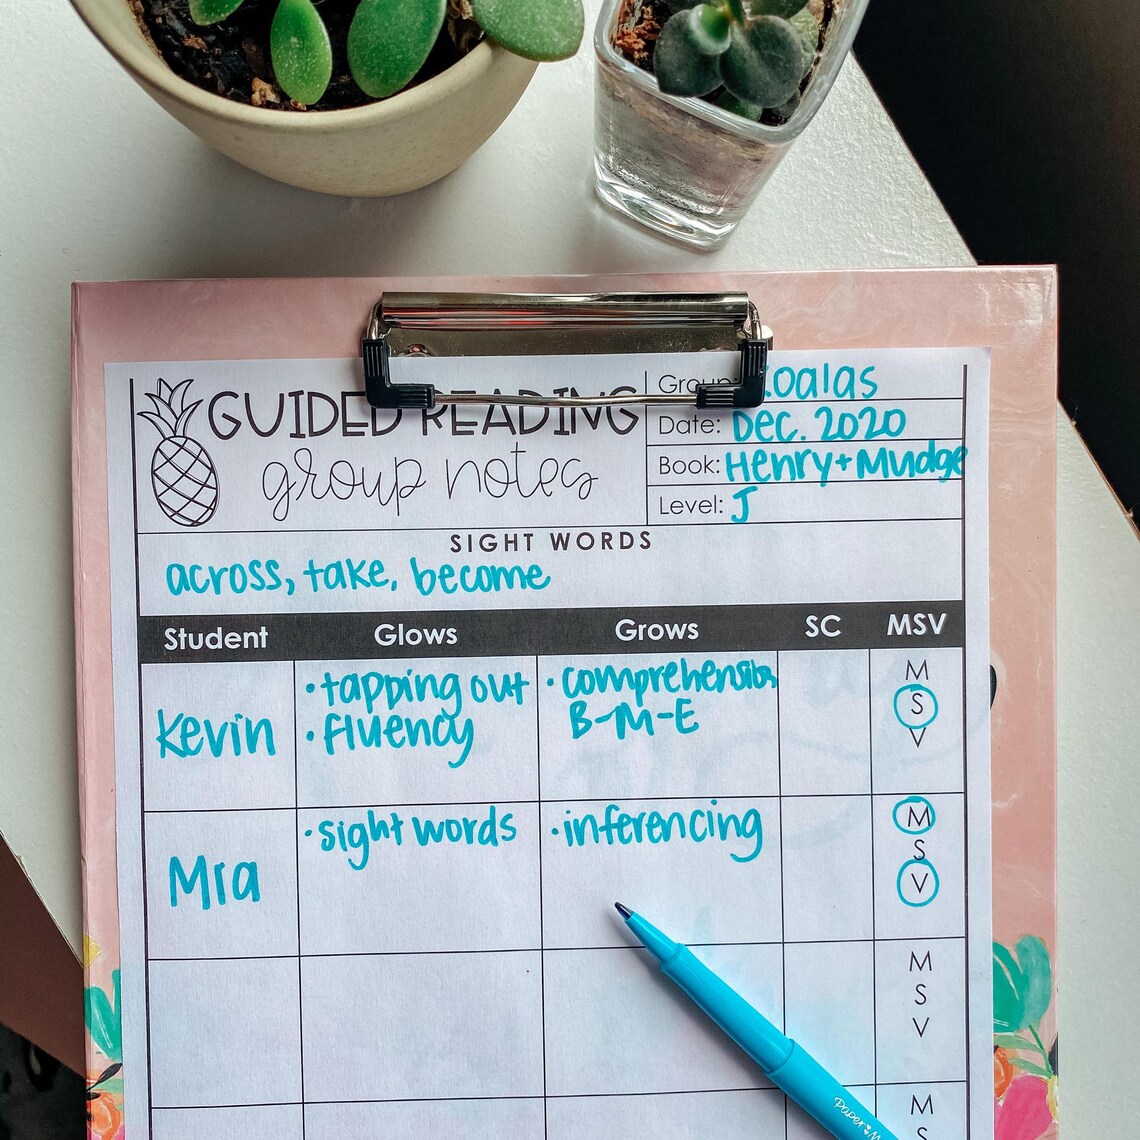 GUIDED READING
group notes
Group: Koalas
Date: Dec. 2020
Book: Henry+Mudge
Level: J
SIGHT WORDS
across, take, become
Student Glows Grows SC MSV
Kevin
• tapping out
• fluency
• comprehension
B-M-E
M
S
V
Mia
• sight words
• inferencing
M
S
V
M
S
V
M
S
Paper